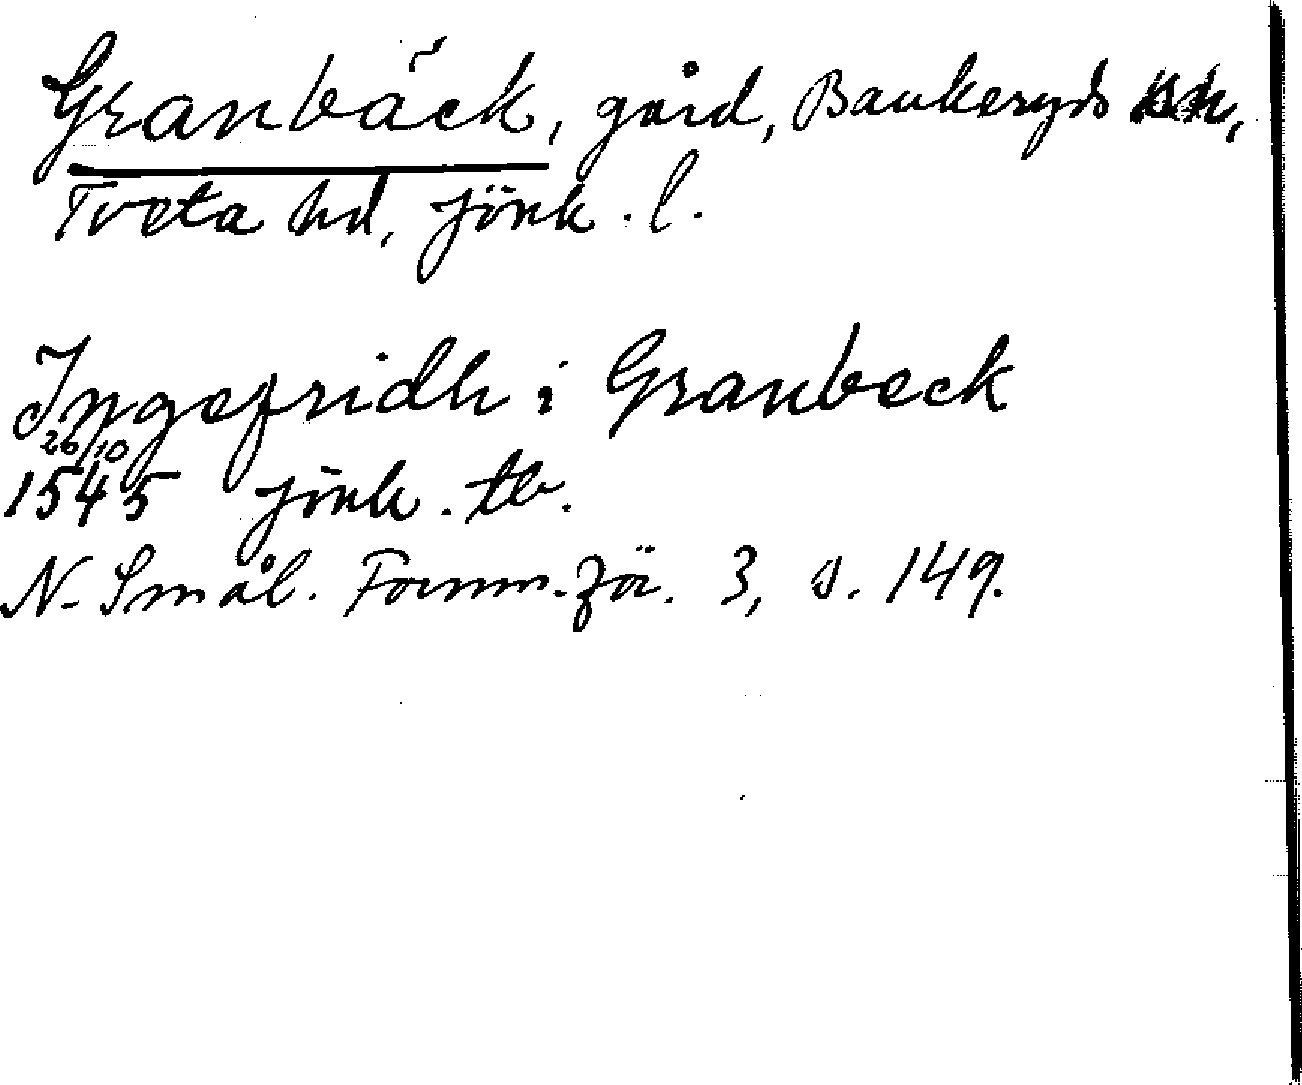 Granbäck, gård, Bankeryds sn,
Tveta hd, Jönk. l.
Ingefridh i Granbeck
26/10
1545 Jönk. tb.
N. Smål. Fornm.för. 3, s. 149.